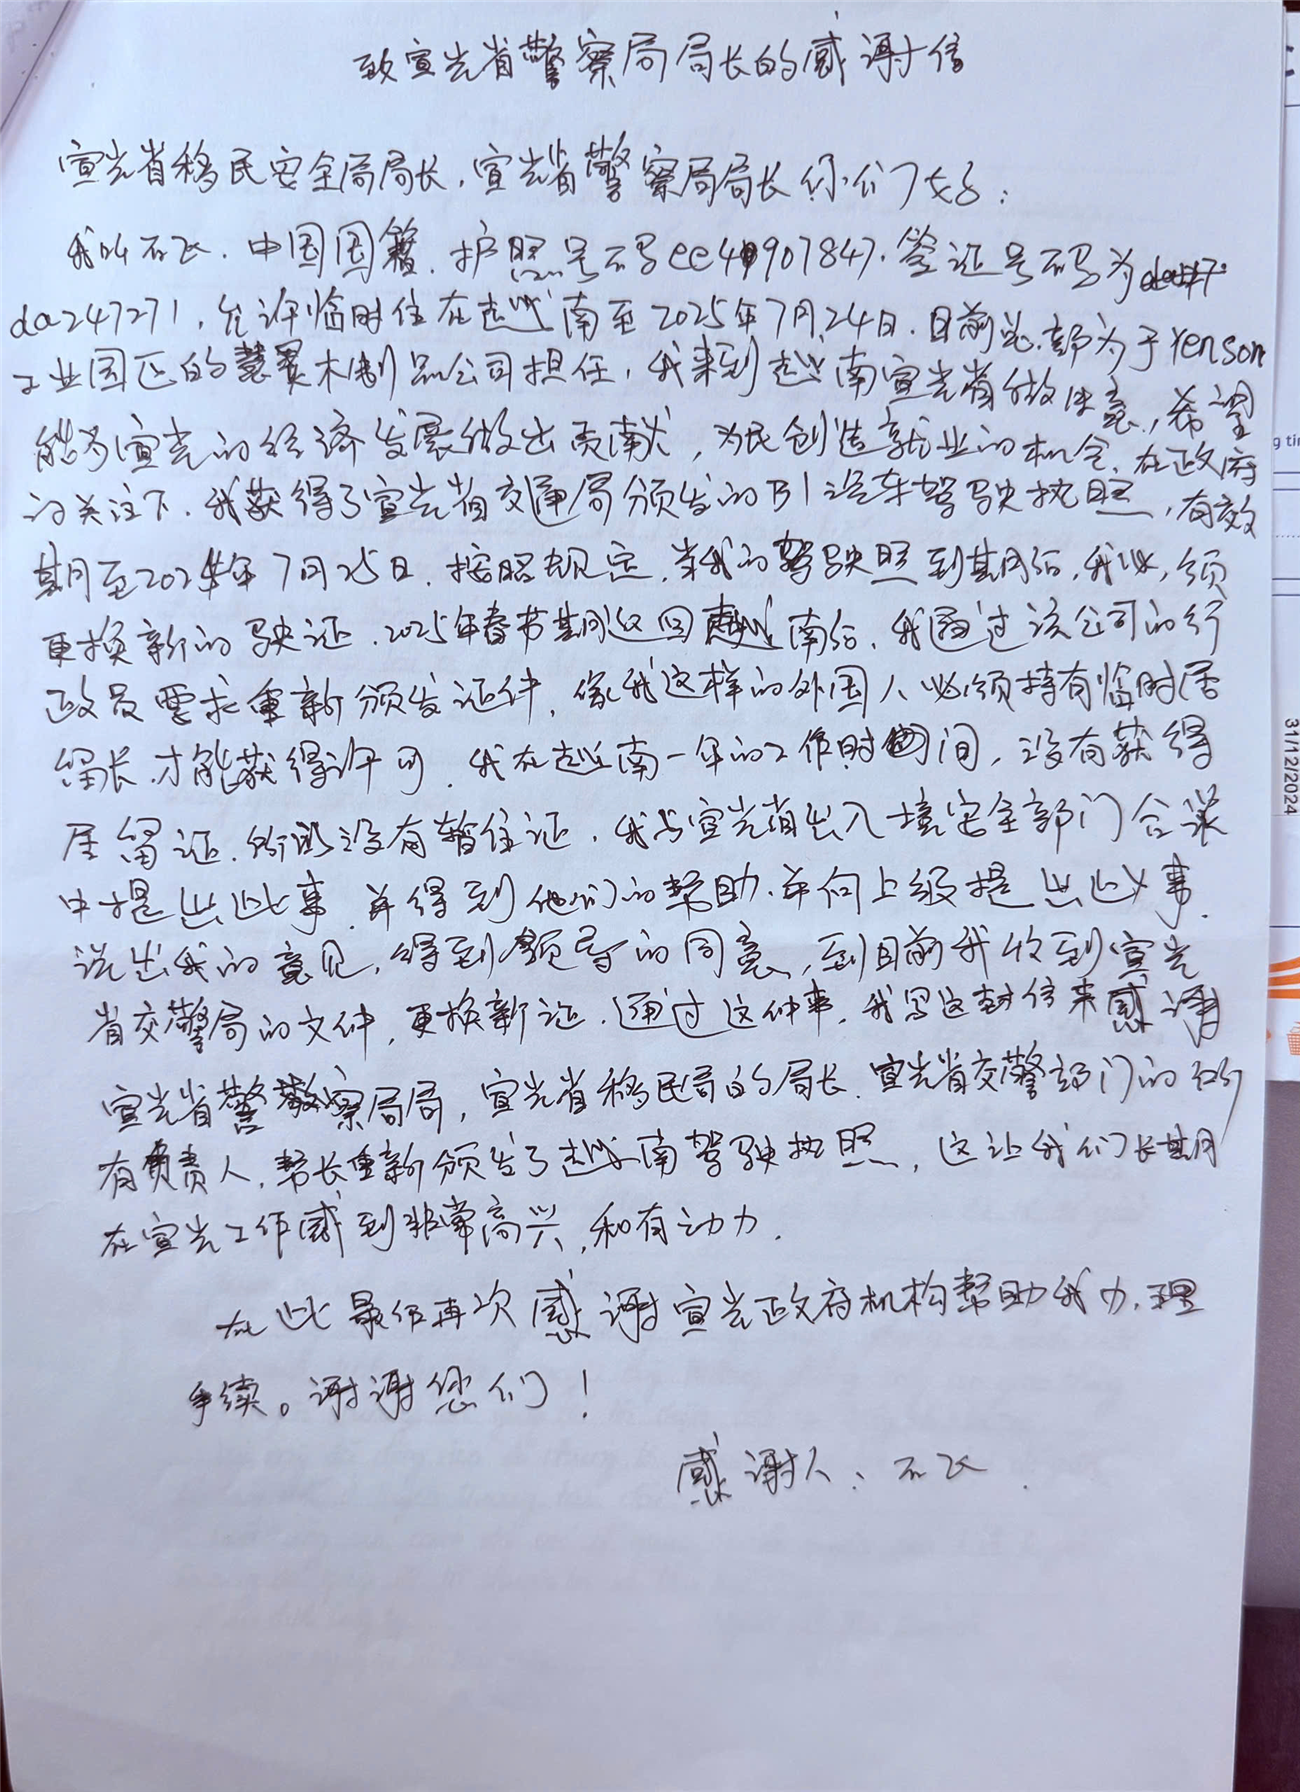 致宣光省警察局局长的感谢信
宣光省移民安全局局长，宣光省警察局局长你们好：
我叫石飞．中国国籍．护照号码ee4907847．签证号码为
da247271，允许临时住在越南至2025年7月24日．目前总部为于Yenson
工业园区的慧赛木制品公司担任，我来到越南宣光省做生意，希望
能为宣光的经济发展做出贡献，为民创造就业的机会．在政府
的关注下．我获得了宣光省交通局颁发的B1汽车驾驶执照，有效
期至2024年7月25日．按照规定，当我的驾驶照到期后，我必须
更换新的驶证．2025年春节期返回越南后，我通过该公司的行
政员要求重新颁发证件，像我这样的外国人必须持有临时居
留长才能获得许可．我在越南一年的工作时间，没有获得
居留证．所以没有暂住证．我与宣光省出入境安全部门会谈
中提出此事．并得到他们的帮助．并向上级提出此事．
说出我的意见，得到领导的同意，到目前我收到宣光
省交警局的文件，更换新证．通过这件事，我写这封信来感谢
宣光省警察局局，宣光省移民局的局长．宣光省交警部门的所
有负责人，帮长重新颁发了越南驾驶执照，这让我们长期
在宣光工作感到非常高兴，和有动力．
在此最后再次感谢宣光政府机构帮助我办理
手续。谢谢您们！
感谢人：石飞
31/12/2024